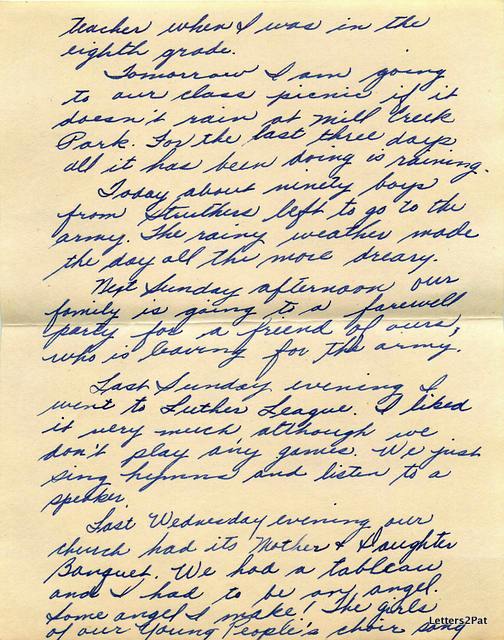 teacher when I was in the
eighth grade.
Tomorrow I am going
to our class picnic if it
doesn't rain at Mill Creek
Park. For the last three days
all it has been doing is raining.
Today about ninety boys
from Struthers left to go to the
army. The rainy weather made
the day all the more dreary.
Next Sunday afternoon our
family is going to a farewell
party for a friend of ours,
who is leaving for the army.
Last Sunday evening I
went to Luther League. I liked
it very much although we
don't play any games. We just
sing hymns and listen to a
speaker.
Last Wednesday evening our
church had its Mother & Daughter
Banquet. We had a tableau
and I had to be an angel.
Some angel I make! The girls
of our Young People's choir sang
Letters2Pat